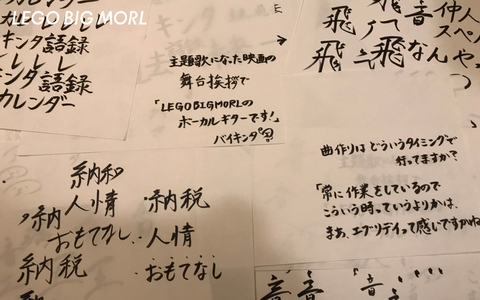 LEGO BIG MORL
キンタ語録
レレレレ
キンタ語録
カレンダー
主題歌になった映画の
舞台挨拶で
「LEGO BIGMORLの
ボーカルギターです!」
バイキンタ
飛 音 仲人
飛 なんや
曲作りはどういうタイミングで
行ってますか?
「常に作業をしているので
こういう時っていうよりかは、
まあ、エブリデイって感じですかね
納和
人情 ・納税
納
おもてなし ・人情
納税 ・おもてなし
音 音